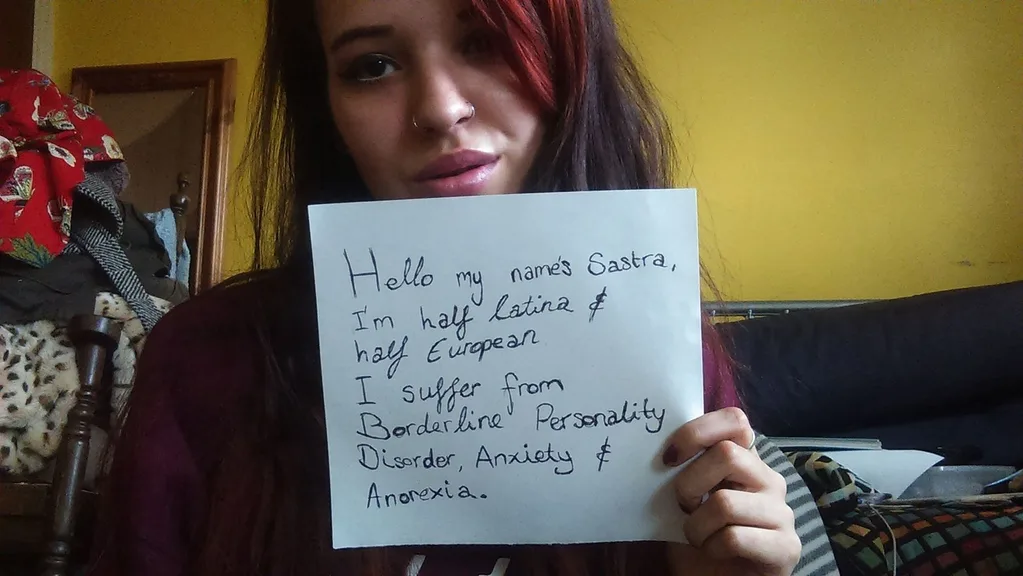 Hello my name's Sastra,
I'm half latina &
half European
I suffer from
Borderline Personality
Disorder, Anxiety &
Anorexia.